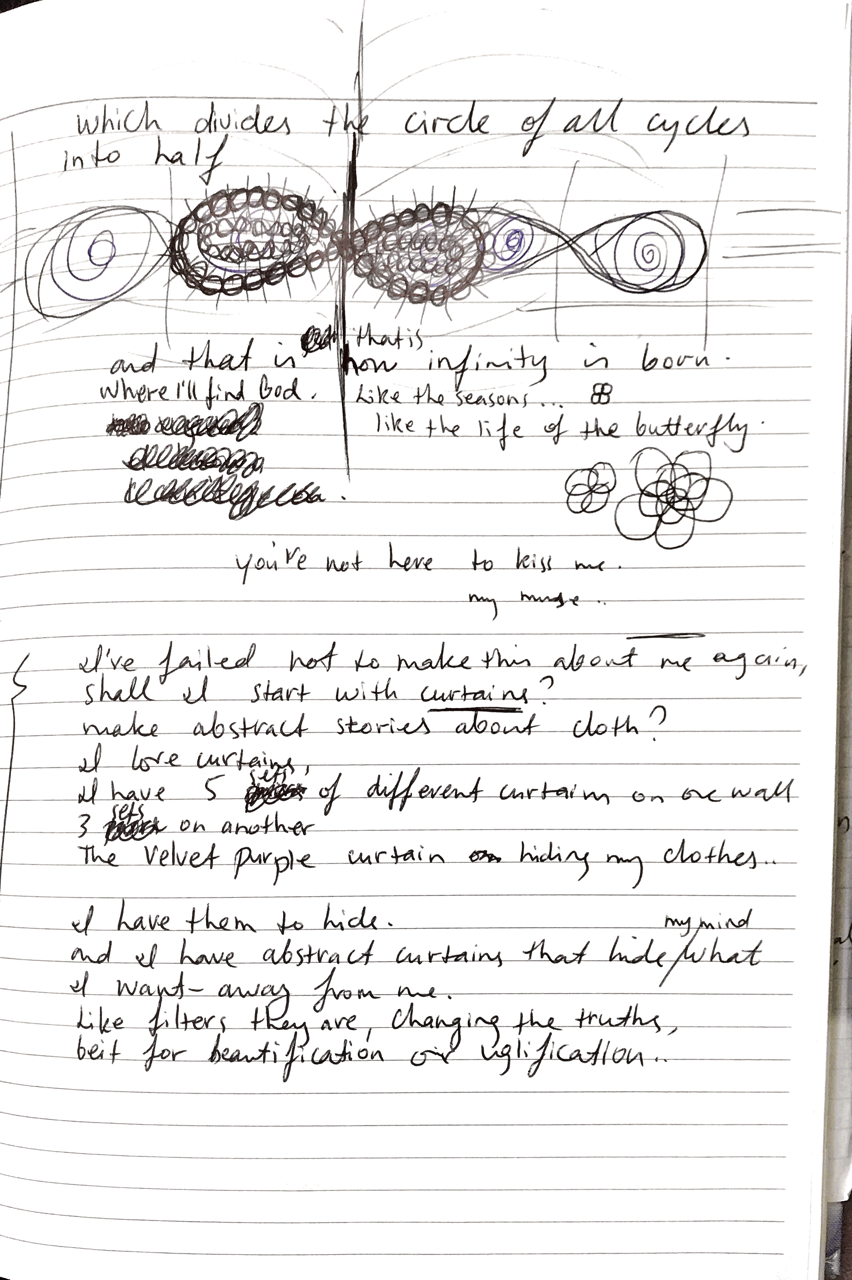 which divides the circle of all cycles
into half
that is
and that is how infinity is born.
where I'll find God. Like the seasons...
like the life of the butterfly.
you're not here to kiss me.
my muse..
I've failed not to make this about me again,
shall I start with curtains?
make abstract stories about cloth?
I love curtains,
sets
I have 5 of different curtains on one wall
sets
3 on another
The velvet purple curtain hiding my clothes..
I have them to hide.
my mind
and I have abstract curtains that hide/what
I want - away from me.
Like filters they are, changing the truths,
beit for beautification or uglification..